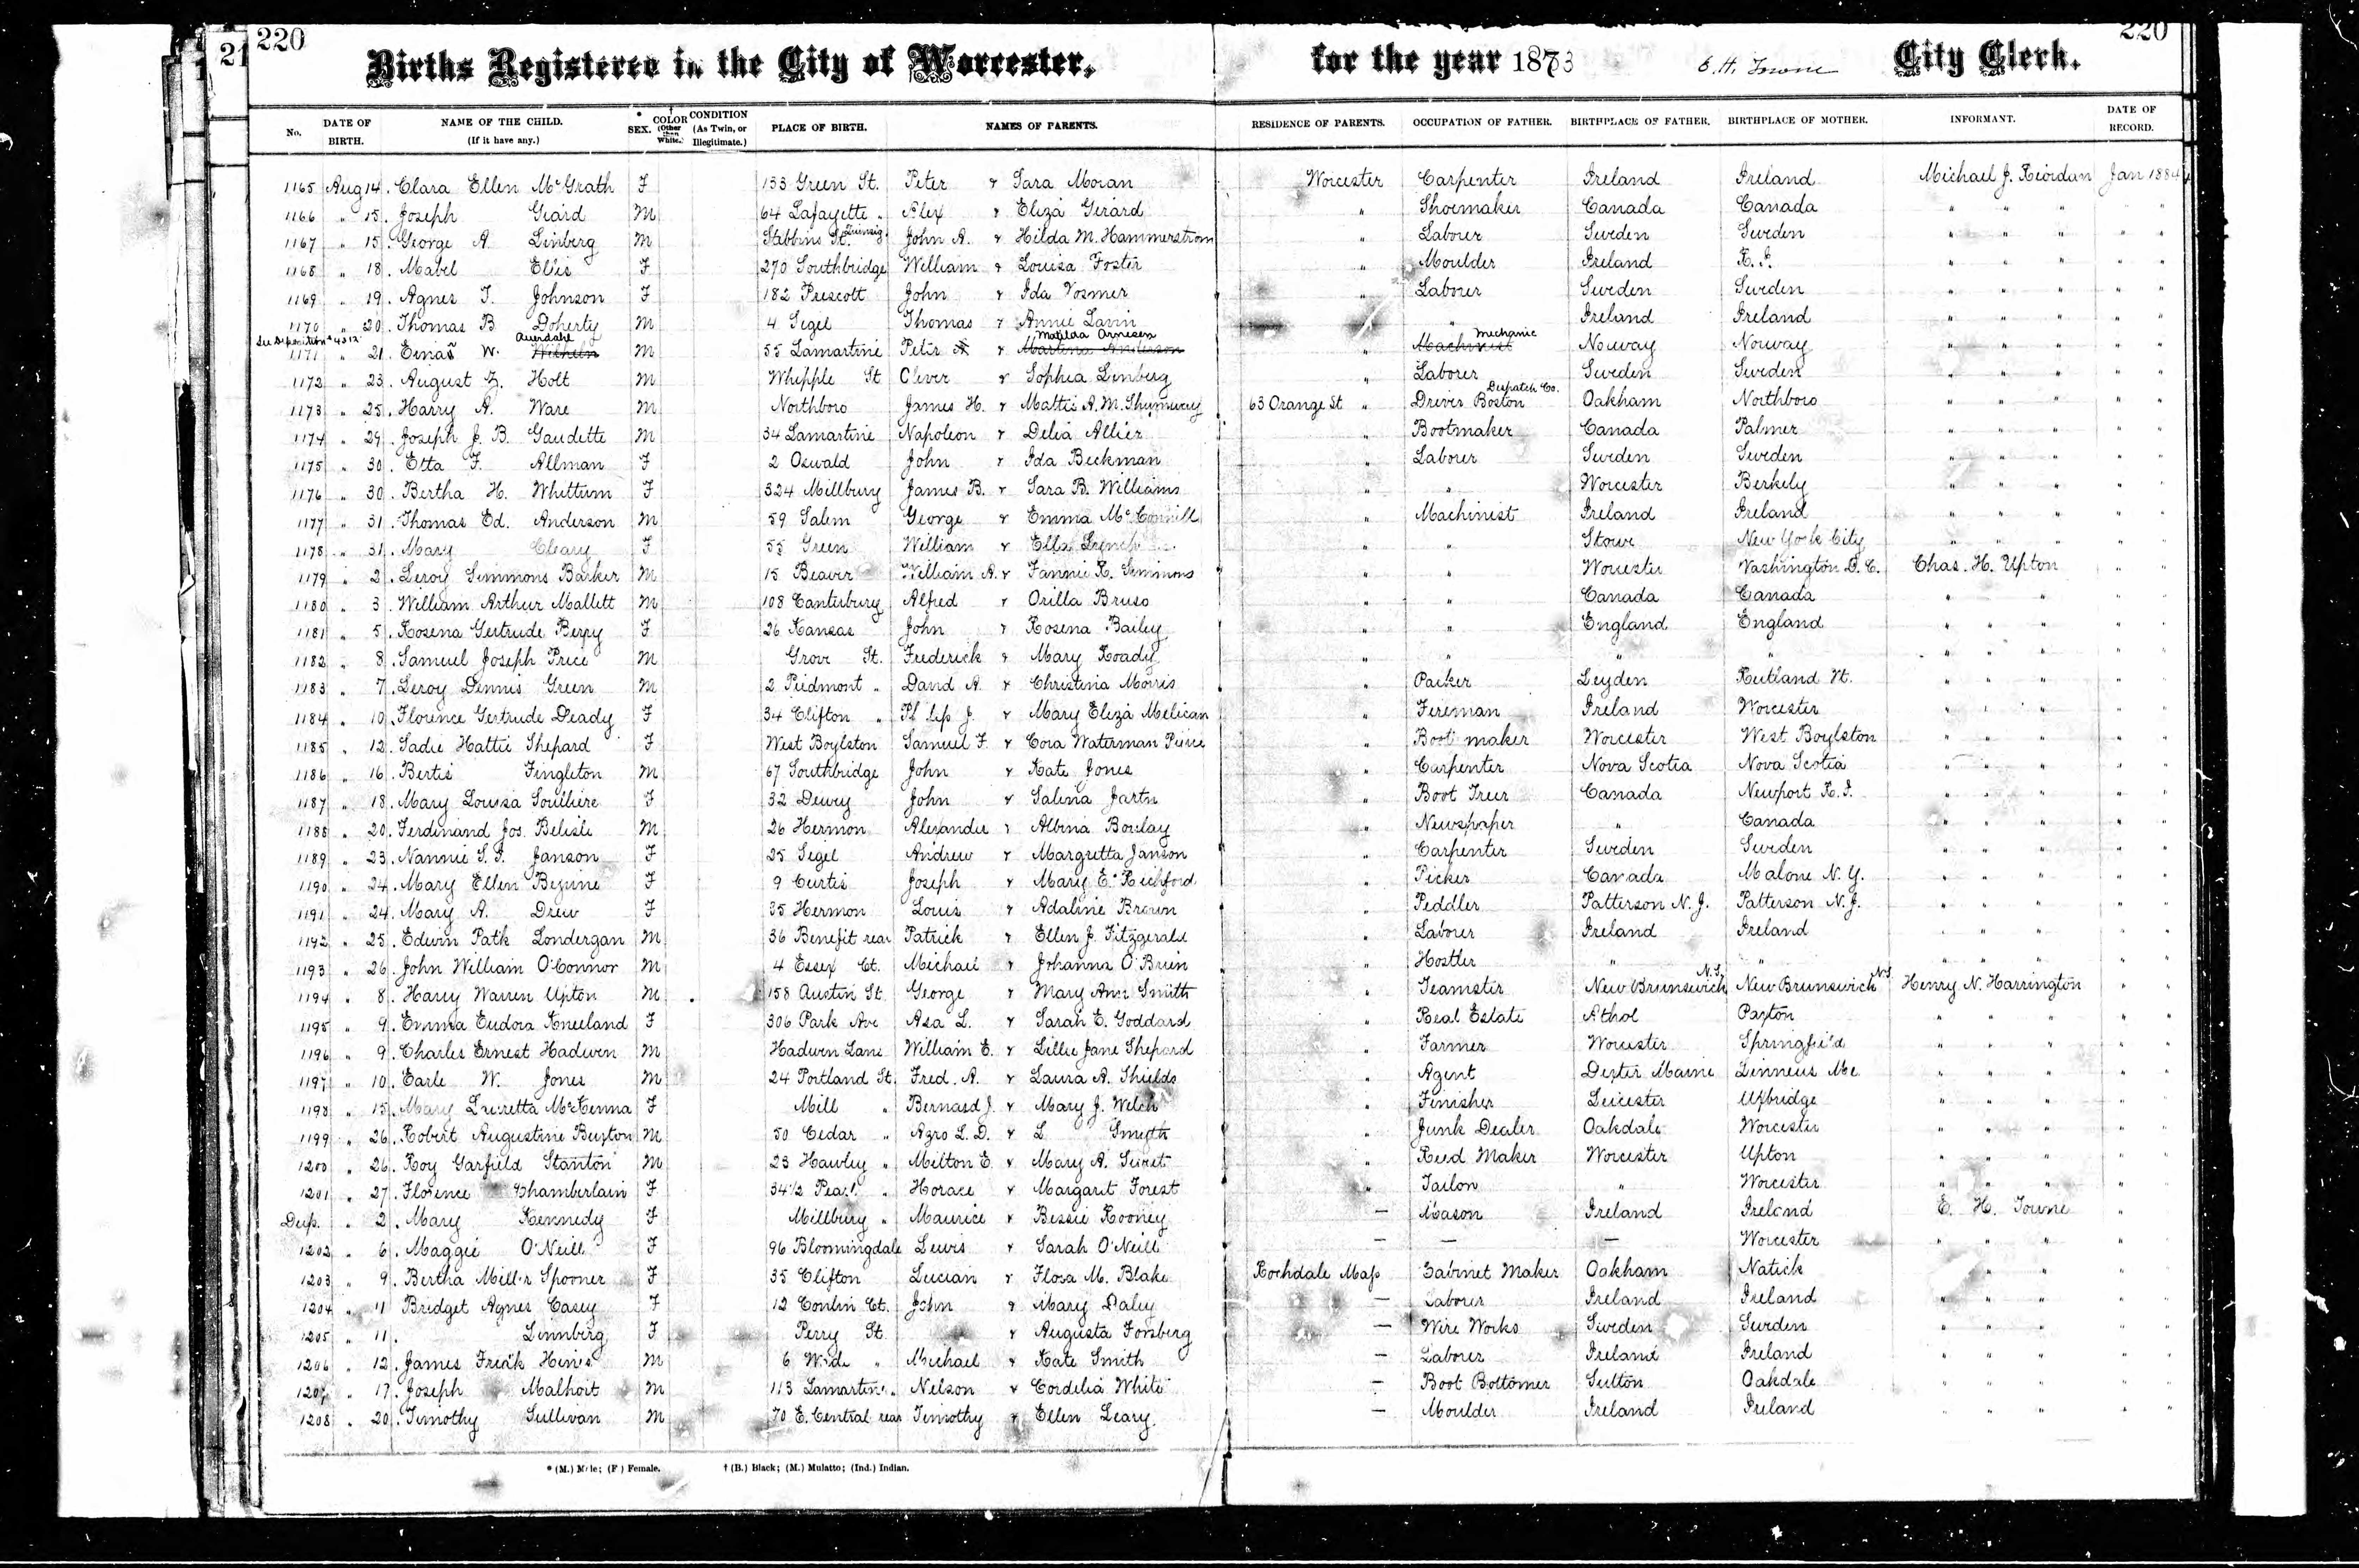 21 220 220
Births Registered in the City of Worcester, for the year 1883 E. H. Towne City Clerk.
No. DATE OF BIRTH. NAME OF THE CHILD. (If it have any.) * SEX. † COLOR (Other than White.) CONDITION (As Twin, or Illegitimate.) PLACE OF BIRTH. NAMES OF PARENTS. RESIDENCE OF PARENTS. OCCUPATION OF FATHER. BIRTHPLACE OF FATHER. BIRTHPLACE OF MOTHER. INFORMANT. DATE OF RECORD.
1165 Aug 14. Clara Ellen McGrath F 133 Green St. Peter & Sara Moran Worcester Carpenter Ireland Ireland Michael J. Riordan Jan 1884
1166 " 15. Joseph Giard M 64 Lafayette " Alex & Eliza Gerard " Shoemaker Canada Canada " " " " "
1167 " 15. George A. Linberg M Stebbins St. John A. & Hilda M. Hammerstrom " Laborer Sweden Sweden " " " " "
1168 " 18. Mabel Ellis F 270 Southbridge William & Louisa Foster " Moulder Ireland R. I. " " " " "
1169 " 19. Agnes T. Johnson F 182 Prescott John & Ida Vosmer " Laborer Sweden Sweden " " " " "
1170 " 20. Thomas B Doherty M 4 Sigel Thomas & Annie Lavin " " Ireland Ireland " " " " "
See Deposition # 4312 Avendahl Matilda Arnesen mechanic
1171 " 21. Einar W. Wilhelm M 55 Lamartine Peter A & Martina Anderson " Machinist Norway Norway " " " " "
1172 " 23. August Z. Holt M Whipple St Oliver & Sophia Linberg " Laborer Sweden Sweden " " " " "
1173 " 25. Harry A. Ware M Northboro James H. & Mattie A. M. Shumway 63 Orange St " Driver Boston Despatch Co. Oakham Northboro " " " " "
1174 " 29. Joseph J. B. Gaudette M 34 Lamartine Napoleon & Delia Allier " Bootmaker Canada Palmer " " " " "
1175 " 30. Etta F. Allman F 2 Oswald John & Ida Beckman " Laborer Sweden Sweden " " " " "
1176 " 30. Bertha H. Whittum F 324 Millbury James B. & Sara B. Williams " " Worcester Berkely " " " " "
1177 " 31. Thomas Ed. Anderson M 59 Salem George & Emma McConnill " Machinist Ireland Ireland " " " " "
1178 " 31. Mary Cleary F 55 Green William & Ella " " Stowe New York City " " " " "
1179 " 2. Leroy Simmons Barker M 15 Beaver William A. & Fannie R. Simmons " " Worcester Washington D. C. Chas. H. Upton " "
1180 " 3. William Arthur Mallett M 108 Canterbury Alfred & Orilla Bruso " " Canada Canada " " " " "
1181 " 5. Rosena Gertrude Berry F 26 Kansas John & Rosena Bailey " " England England " " " " "
1182 " 8. Samuel Joseph Price M Grove St. Frederick & Mary Roady " " " " " " " " "
1183 " 7. Leroy Dennis Green M 2 Piedmont " David A. & Christina Morris " Packer Leyden Rutland Vt. " " " " "
1184 " 10. Florence Gertrude Deady F 34 Clifton " Philip J. & Mary Eliza Melican " Fireman Ireland Worcester " " " " "
1185 " 12. Sadie Hattie Shepard F West Boylston Samuel F. & Cora Waterman Peirce " Boot maker Worcester West Boylston " " " " "
1186 " 16. Bertis Fingleton M 67 Southbridge John & Kate Jones " Carpenter Nova Scotia Nova Scotia " " " " "
1187 " 18. Mary Louisa Soulliere F 32 Dewey John & Salina " Boot Treer Canada Newport R. I. " " " " "
1188 " 20. Ferdinand Jos. Belisle M 26 Hermon Alexander & Albina Boulay " Newspaper " Canada " " " " "
1189 " 23. Nannie S. I. Janson F 25 Sigel Andrew & Margretta Janson " Carpenter Sweden Sweden " " " " "
1190 " 24. Mary Ellen F 9 Curtis Joseph & Mary E. Richford " Picker Canada Malone N. Y. " " " " "
1191 " 24. Mary A. Drew F 35 Hermon Louis & Adaline Brown " Peddler Patterson N. J. Patterson N. J. " " " " "
1192 " 25. Edwin Patk Londergan M 36 Benefit rear Patrick & Ellen J. Fitzgerald " Laborer Ireland Ireland " " " " "
1193 " 26. John William O'Connor M 4 Essex Ct. Michael & Johanna O'Brien " Hostler " " " " " " "
1194 " 8. Harry Warren Upton M 158 Austin St George & Mary Ann Smith " Teamster New Brunswick N.S. New Brunswick N.S. Henry N. Harrington " "
1195 " 9. Emma Eudora Kneeland F 306 Park Ave Asa L. & Sarah E. Goddard " Real Estate Athol Paxton " " " " "
1196 " 9. Charles Ernest Hadwen M Hadwen Lane William E. & Lillie Jane Shepard " Farmer Worcester Springfield " " " " "
1197 " 10. Earle W. Jones M 24 Portland St. Fred. A. & Laura A. Shields " Agent Dexter Maine Linneus Me " " " " "
1198 " 15. Mary Lucretta McKenna F Mill " Bernard J. & Mary J. Welch " Finisher Leicester Uxbridge " " " " "
1199 " 26. Robert Augustine Buxton M 50 Cedar " Azro L. D. & L Smyth " Junk Dealer Oakdale Worcester " " " " "
1200 " 26. Roy Garfield Stanton M 23 Hawley " Milton E. & Mary A. Sweet " Reed Maker Worcester Upton " " " " "
1201 " 27. Florence Chamberlain F 34½ Pearl " Horace & Margaret Forest " Tailor " Worcester " " " " "
Dup. " 2. Mary Kennedy F Millbury " Maurice & Bessie Rooney — Mason Ireland Ireland E. H. Towne "
1202 " 6. Maggie O'Neill F 96 Bloomingdale Lewis & Sarah O'Neill — — — Worcester " " " " "
1203 " 9. Bertha Miller Spooner F 35 Clifton Lucian & Flora M. Blake Rochdale Mass Cabinet Maker Oakham Natick " " " "
1204 " 11 Bridget Agnes Casey F 12 Conlin Ct. John & Mary Daley — Laborer Ireland Ireland " " " " "
1205 " 11. Linnberg F Perry St & Augusta Forsberg — Wire Works Sweden Sweden " " " " "
1206 " 12. James Fred'k Hines M 6 Wade " Michael & Kate Smith — Laborer Ireland Ireland " " " " "
1207 " 17. Joseph Malhoit M 113 Lamartine " Nelson & Cordelia White — Boot Bottomer Sutton Oakdale " " " " "
1208 " 20. Timothy Sullivan M 70 E. Central rear Timothy & Ellen Leary. — Moulder Ireland Ireland " " " " "
* (M.) Male; (F.) Female. † (B.) Black; (M.) Mulatto; (Ind.) Indian.